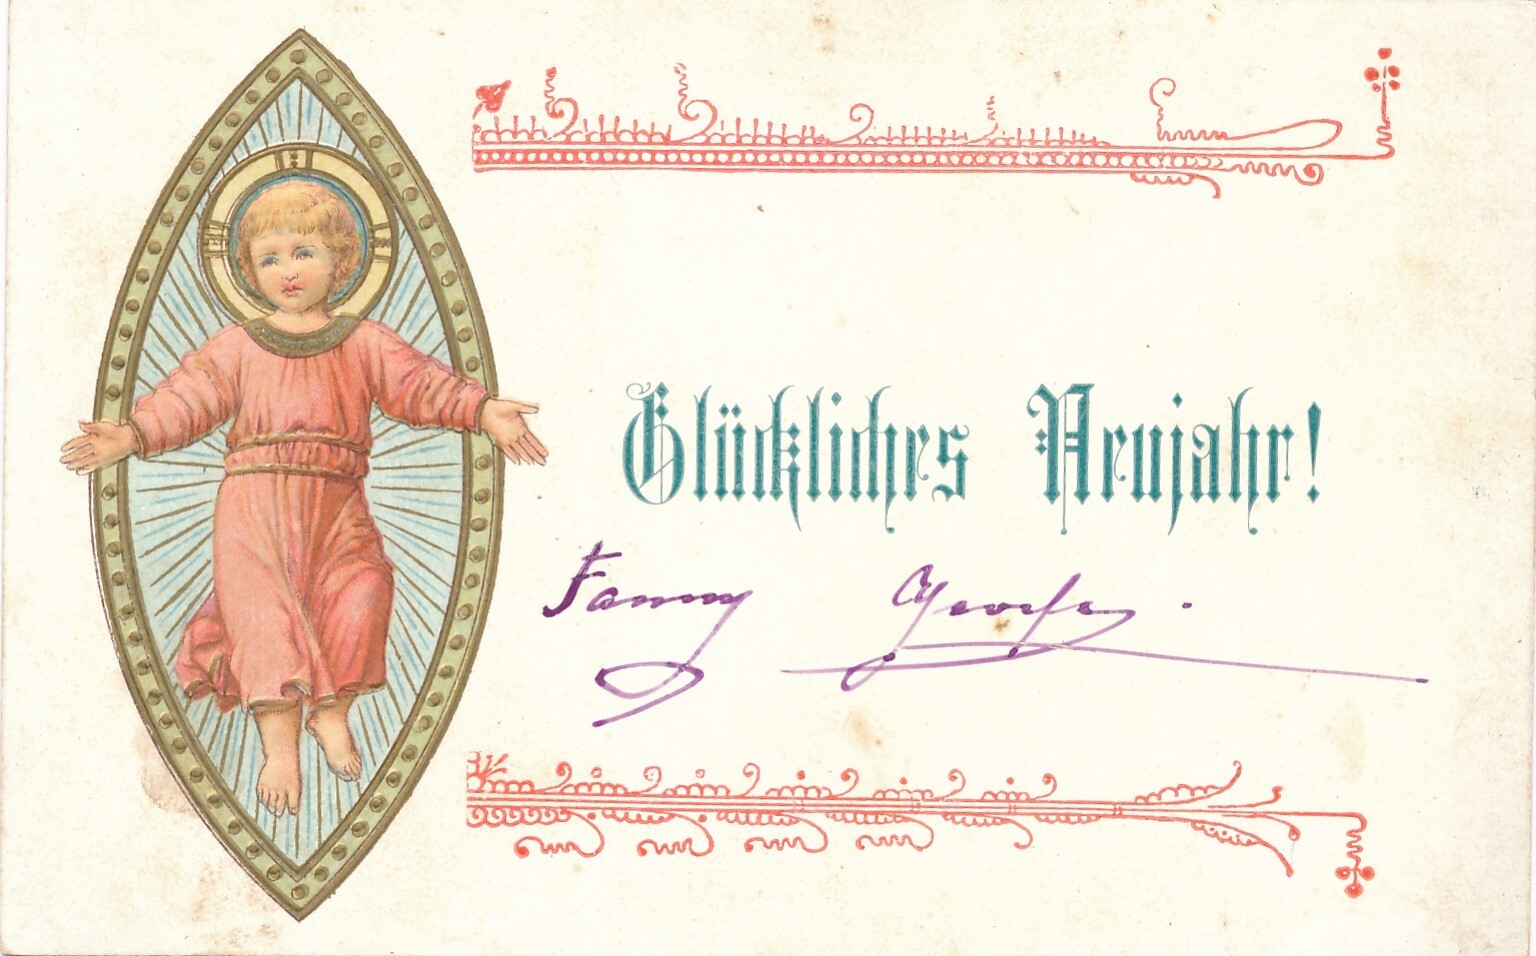 Glückliches Neujahr!
Fanny